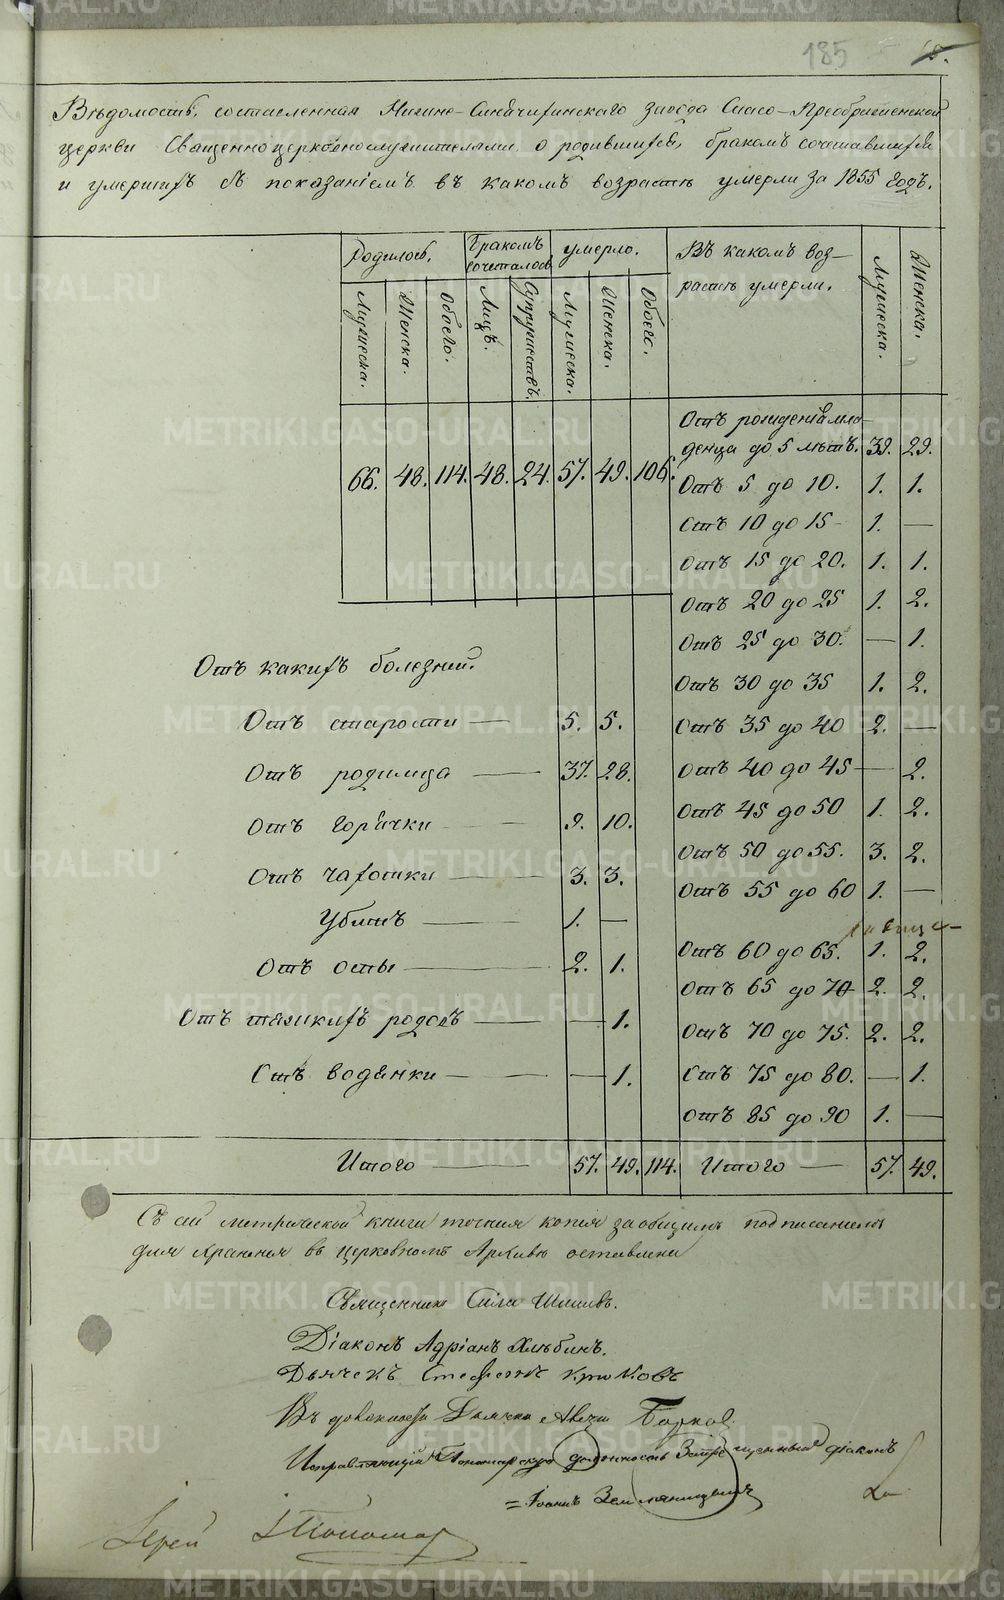 185
Вѣдомость, составленная Нижне-Синячихинскаго завода Спасо-Преображенской
церкви Священноцерковнослужителями о родившихся, бракомъ сочетавшихся
и умершихъ съ показаніемъ въ какомъ возрастѣ умерли за 1855 годъ.
Родилось. Бракомъ сочеталось умерло. Въ какомъ воз-
растѣ умерли. Мужеска. Женска.
Мужеска. Женска. Обоего. Лицъ. Супружествъ. Мужеска. Женска. Обоего.
66. 48. 114. 48. 24. 57. 49. 106.
Отъ рожденія мла-
денца до 5 лѣтъ. 39. 29.
Отъ 5 до 10. 1. 1.
Отъ 10 до 15 - 1. —
Отъ 15 до 20. 1. 1.
Отъ 20 до 25 1. 2.
Отъ 25 до 30. — 1.
Отъ 30 до 35 1. 2.
Отъ 35 до 40 2. —
Отъ 40 до 45 — 2.
Отъ 45 до 50 1. 2.
Отъ 50 до 55. 3. 2.
Отъ 55 до 60 1. —
Отъ 60 до 65. 1. 2.
Отъ 65 до 70 2. 2.
Отъ 70 до 75. 2. 2.
Отъ 75 до 80. — 1.
Отъ 85 до 90 1. —
Отъ какихъ болезней.
Отъ старости — 5. 5.
Отъ родимца — 37. 28.
Отъ горячки — 9. 10.
Отъ чахотки — 3. 3.
Убитъ — 1. —
Отъ оспы — 2. 1.
Отъ тяжкихъ родовъ — — 1.
Отъ водянки — — 1.
Итого — 57. 49. 114. Итого — 57. 49.
Съ сей метрической книги точная копія за общимъ подписаніемъ
для храненія въ церковномъ Архивѣ оставлена
Священникъ Сила
Діаконъ Адріанъ Хлѣбинъ.
Дьячекъ Стефанъ Крюковъ
Въ должности Дьячка
Исправляющій Пономарскую должность діаконъ
= Іоаннъ Земляницынъ
Іерей І Пономар
METRIKI.GASO-URAL.RU